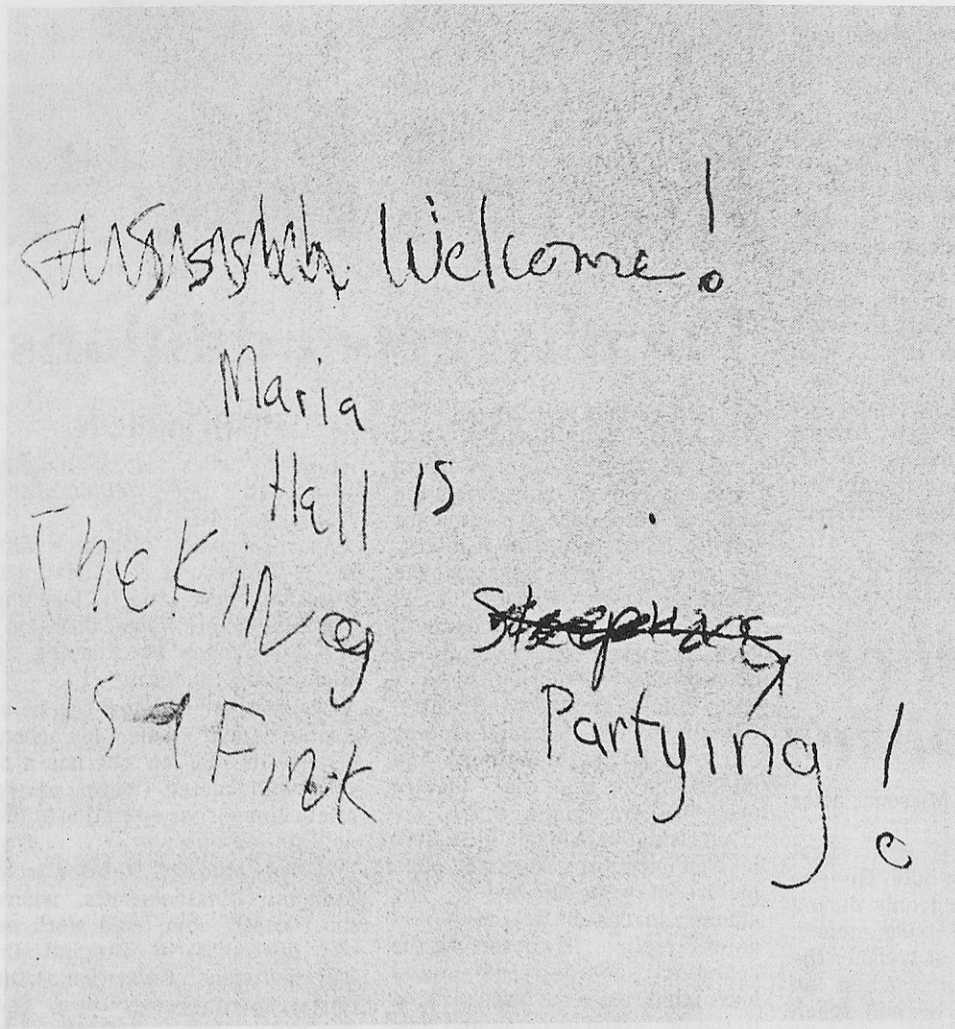 Welcome!
Maria
Hell is
The King
is a Fink
Partying!